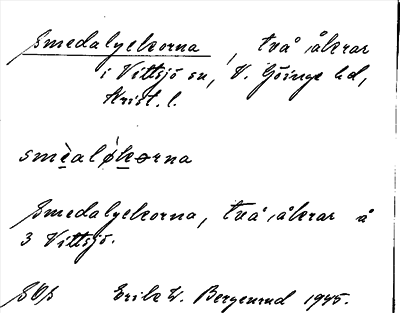 Smedalyckorna, två åkrar
i Vittsjö sn, V. Göinge hd,
Krist. l.
smèaløkorna
Smedalyckorna, två åkrar å
3 Vittsjö.
SOS Erik W. Bergenrud 1945.